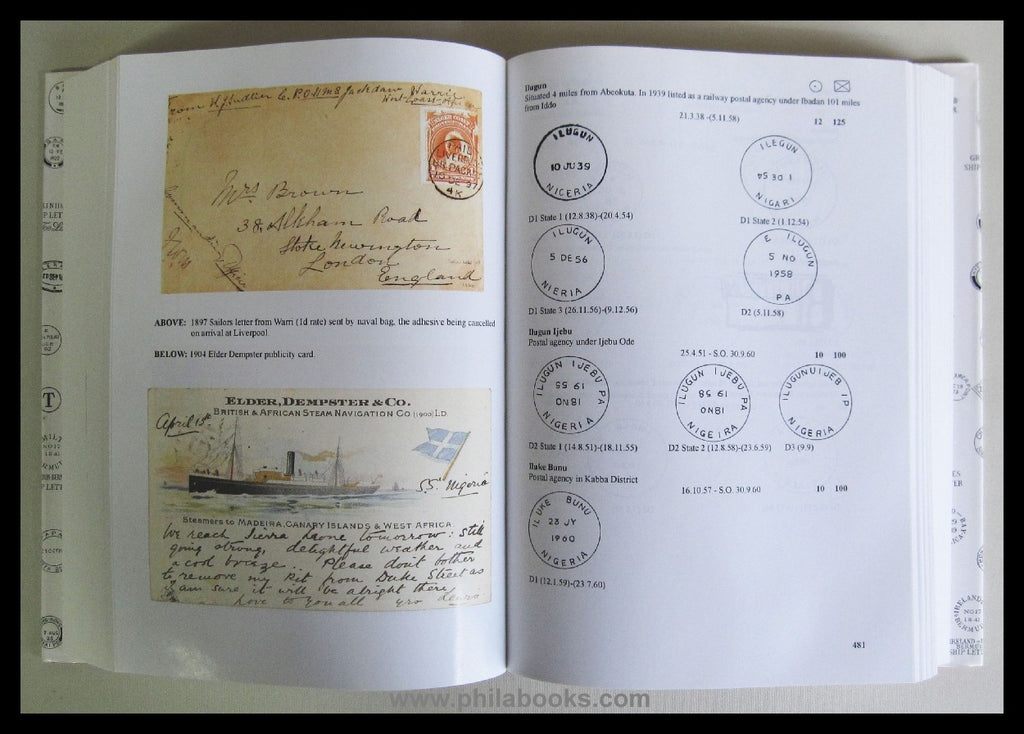 Mrs. Brown
38 Alkham Road
Stoke Newington
London
England
ABOVE: 1897 Sailors letter from Warri (1d rate) sent by naval bag, the adhesive being cancelled
on arrival at Liverpool
BELOW: 1904 Elder Dempster publicity card.
ELDER, DEMPSTER & CO.
BRITISH & AFRICAN STEAM NAVIGATION CO (1900) LD
April 15th
S.S. Nigeria
Steamers to MADEIRA, CANARY ISLANDS & WEST AFRICA
We reach Sierra Leone tomorrow: still
going strong, delightful weather and
a cool breeze. Please dont bother
to remove my kit from Duke Street as
I am sure it will be alright there
love to you all
Ilugun
Situated 4 miles from Abeokuta. In 1939 listed as a railway postal agency under Ibadan 101 miles
from Iddo
21.3.38 -(5.11.58) 12 125
ILUGUN
10 JU 39
NIGERIA
ILEGUN
1 DE 54
NIGARI
D1 State 1 (12.8.38)-(20.4.54) D1 State 2 (1.12.54)
ILUGUN
5 DE 56
NIERIA
E ILUGUN
5 NO
1958
PA
D1 State 3 (26.11.56)-(9.12.56) D2 (5.11.58)
Ilugun Ijebu
Postal agency under Ijebu Ode
25.4.51 - S.O. 30.9.60 10 100
ILUGUN IJEBU PA
NIGERIA
ILUGUN IJEBU PA
NIGEIRA
ILUGUNUIJEB IP
NIGERIA
D2 State 1 (14.8.51)-(18.11.55) D2 State 2 (12.8.58)-(23.6.59) D3 (9.9)
Iluke Bunu
Postal agency in Kabba District
16.10.57 - S.O. 30.9.60 10 100
ILUKE BUNU
23 JY
1960
NIGERIA
D1 (12.1.59)-(23.7.60)
481
www.philabooks.com